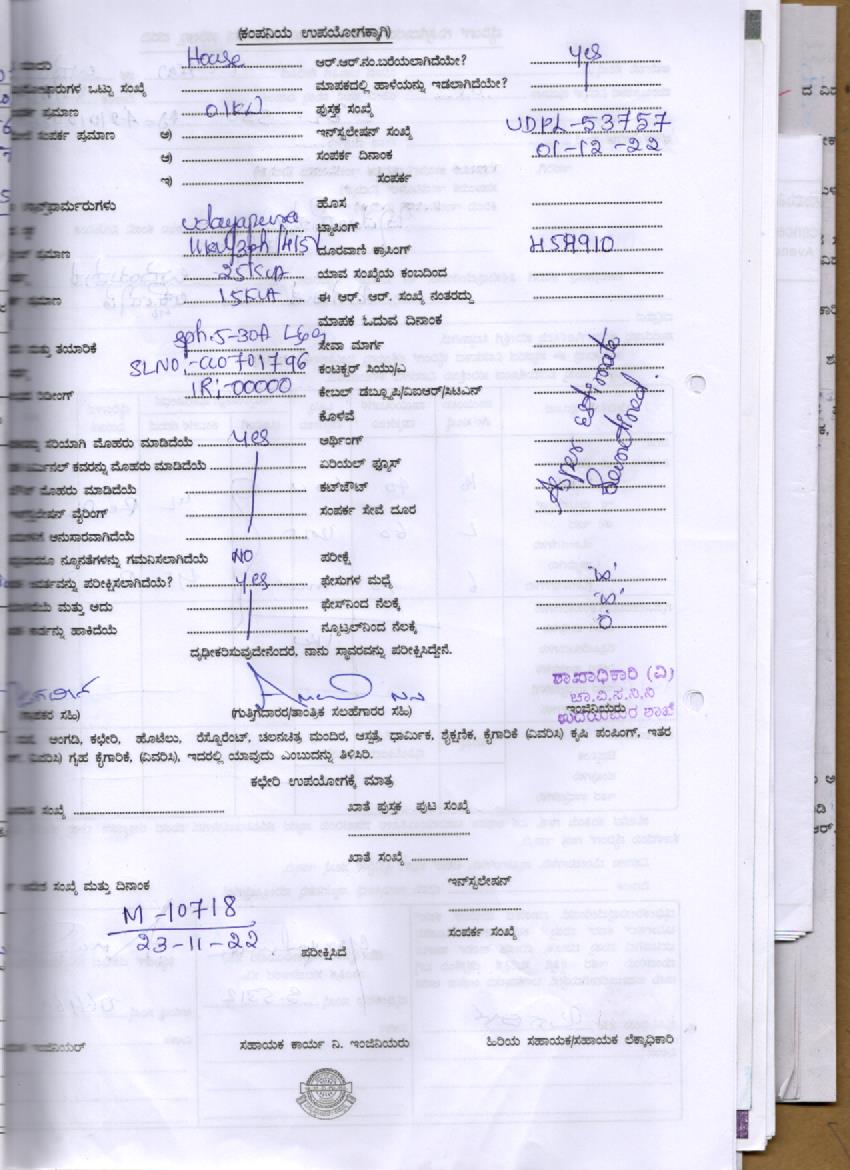 (ಕಂಪನಿಯ ಉಪಯೋಗಕ್ಕಾಗಿ)
House ಆರ್.ಆರ್.ನಂ.ಬರೆಯಲಾಗಿದೆಯೇ? yes
ಒಟ್ಟು ಸಂಖ್ಯೆ ಮಾಪಕದಲ್ಲಿ ಹಾಳೆಯನ್ನು ಇಡಲಾಗಿದೆಯೇ?
ಪ್ರಮಾಣ 01KW ಪುಸ್ತಕ ಸಂಖ್ಯೆ
ಸಂಪರ್ಕ ಪ್ರಮಾಣ ಅ) ಇನ್‌ಸ್ಟಲೇಷನ್ ಸಂಖ್ಯೆ UDPL-53757
ಆ) ಸಂಪರ್ಕ ದಿನಾಂಕ 01-12-22
ಇ) ಸಂಪರ್ಕ
ಹೊಸ
Udayapura ಟ್ಯಾಪಿಂಗ್
ಪ್ರಮಾಣ 11KV/3ph/415V ದೂರವಾಣಿ ಕ್ರಾಸಿಂಗ್ 458910
25KVA ಯಾವ ಸಂಖ್ಯೆಯ ಕಂಬದಿಂದ
ಪ್ರಮಾಣ 15KVA ಈ ಆರ್. ಆರ್. ಸಂಖ್ಯೆ ನಂತರದ್ದು
ಮಾಪಕ ಓದುವ ದಿನಾಂಕ
ಮತ್ತು ತಯಾರಿಕೆ 5-30A L&G ಸೇವಾ ಮಾರ್ಗ
SLNO:- ಕಂಟಕ್ಟರ್ ಸಿಯು/ಎ
ರೀಡಿಂಗ್ IR:-00000 ಕೇಬಲ್ ಡಬ್ಲ್ಯೂಪಿ/ಐಆರ್/ಸಿಟಿಎನ್
ಕೊಳವೆ
ಸರಿಯಾಗಿ ಮೊಹರು ಮಾಡಿದೆಯೆ yes ಅರ್ಥಿಂಗ್
ಕವರನ್ನು ಮೊಹರು ಮಾಡಿದೆಯೆ ಏರಿಯಲ್ ಫ್ಯೂಸ್
ಮೊಹರು ಮಾಡಿದೆಯೆ ಕಟ್‌ಔಟ್
ವೈರಿಂಗ್ ಸಂಪರ್ಕ ಸೇವೆ ದೂರ
ಅನುಸಾರವಾಗಿದೆಯೆ
As per estimate
ನ್ಯೂನತೆಗಳನ್ನು ಗಮನಿಸಲಾಗಿದೆಯೆ NO ಪರೀಕ್ಷೆ
ಪರೀಕ್ಷಿಸಲಾಗಿದೆಯೆ? yes ಫೇಸುಗಳ ಮಧ್ಯೆ
ಮತ್ತು ಅದು ಫೇಸ್‌ನಿಂದ ನೆಲಕ್ಕೆ
ಹಾಕಿದೆಯೆ ನ್ಯೂಟ್ರಲ್‌ನಿಂದ ನೆಲಕ್ಕೆ
ದೃಢೀಕರಿಸುವುದೇನೆಂದರೆ, ನಾನು ಸ್ಥಾವರವನ್ನು ಪರೀಕ್ಷಿಸಿದ್ದೇನೆ.
ಶಾಖಾಧಿಕಾರಿ (ವಿ)
ಚಾ.ವಿ.ಸ.ನಿ.ನಿ
ಸಹಿ) (ಗುತ್ತಿಗೆದಾರರ/ತಾಂತ್ರಿಕ ಸಲಹೆಗಾರರ ಸಹಿ) ಇಂಜಿನಿಯರು
ಉದಯಪುರ ಶಾಖೆ
ಅಂಗಡಿ, ಕಛೇರಿ, ಹೊಟೆಲು, ರೆಸ್ಟೋರೆಂಟ್, ಚಲನಚಿತ್ರ ಮಂದಿರ, ಆಸ್ಪತ್ರೆ, ಧಾರ್ಮಿಕ, ಶೈಕ್ಷಣಿಕ, ಕೈಗಾರಿಕೆ (ವಿವರಿಸಿ) ಕೃಷಿ ಪಂಪಿಂಗ್, ಇತರ
ವಿವರಿಸಿ) ಗೃಹ ಕೈಗಾರಿಕೆ, (ವಿವರಿಸಿ), ಇದರಲ್ಲಿ ಯಾವುದು ಎಂಬುದನ್ನು ತಿಳಿಸಿರಿ.
ಕಛೇರಿ ಉಪಯೋಗಕ್ಕೆ ಮಾತ್ರ
ಸಂಖ್ಯೆ ಖಾತೆ ಪುಸ್ತಕ ಪುಟ ಸಂಖ್ಯೆ
ಖಾತೆ ಸಂಖ್ಯೆ
ಸಂಖ್ಯೆ ಮತ್ತು ದಿನಾಂಕ ಇನ್‌ಸ್ಟಲೇಷನ್
M-10718
23-11-22
ಸಂಪರ್ಕ ಸಂಖ್ಯೆ
ಪರೀಕ್ಷಿಸಿದೆ
ಇಂಜಿನಿಯರ್ ಸಹಾಯಕ ಕಾರ್ಯ ನಿ. ಇಂಜಿನಿಯರು ಹಿರಿಯ ಸಹಾಯಕ/ಸಹಾಯಕ ಲೆಕ್ಕಾಧಿಕಾರಿ